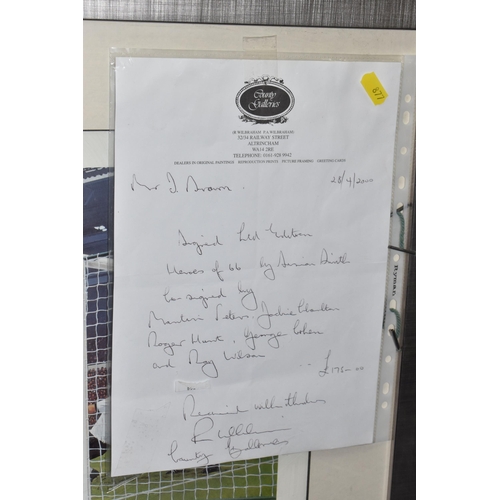 County
Galleries
52/54 RAILWAY STREET
ALTRINCHAM
WA14 2RE
TELEPHONE: 0161-928 9942
DEALERS IN ORIGINAL PAINTINGS REPRODUCTION PRINTS PICTURE FRAMING GREETING CARDS
677
Mr I Brown.
28/4/2000
Signed Ltd Edition
Heroes of 66 by
Co-signed by
Martin Peters. Jackie Charlton
Roger Hunt. George Cohen
and Ray Wilson
£175-00
Received with thanks
County Galleries
Ryman